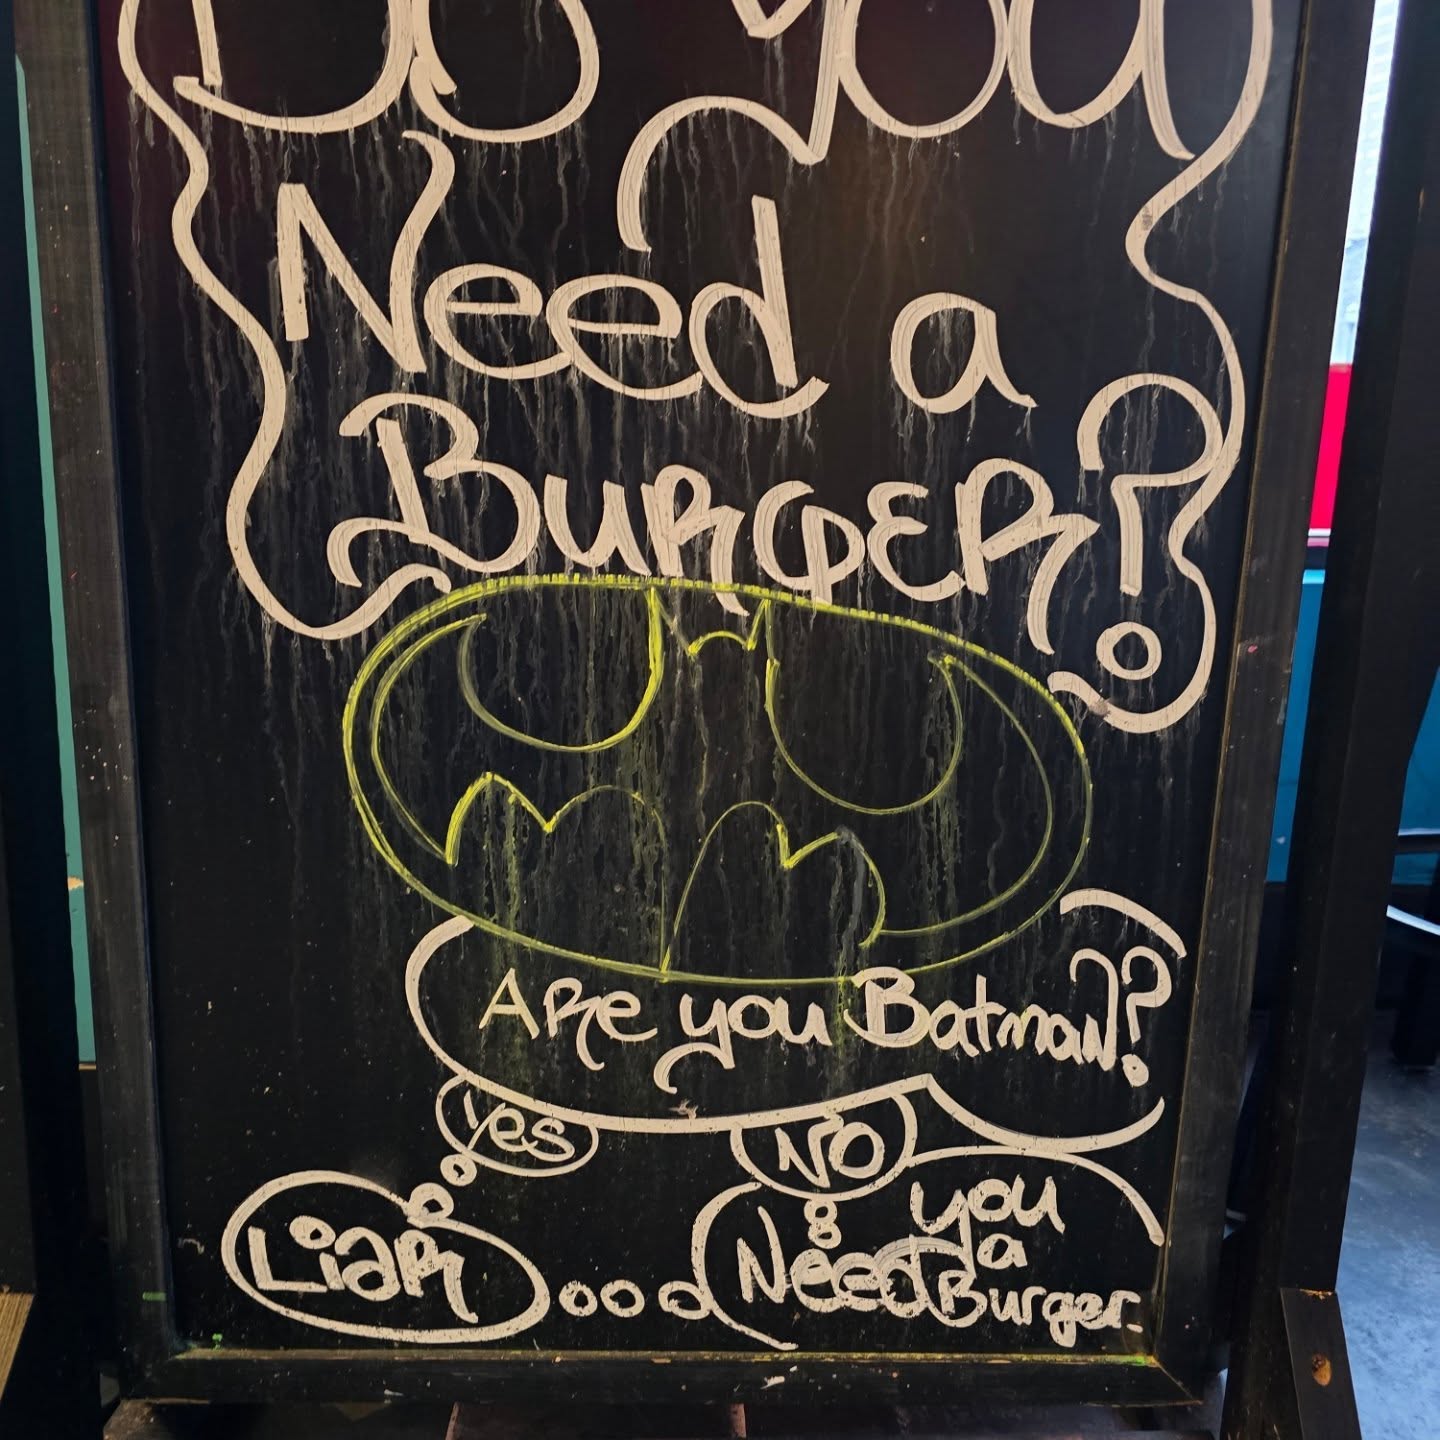 Do you
Need a
BURGER?
Are you Batman??
Yes
NO
Liar
you
Need a
Burger.